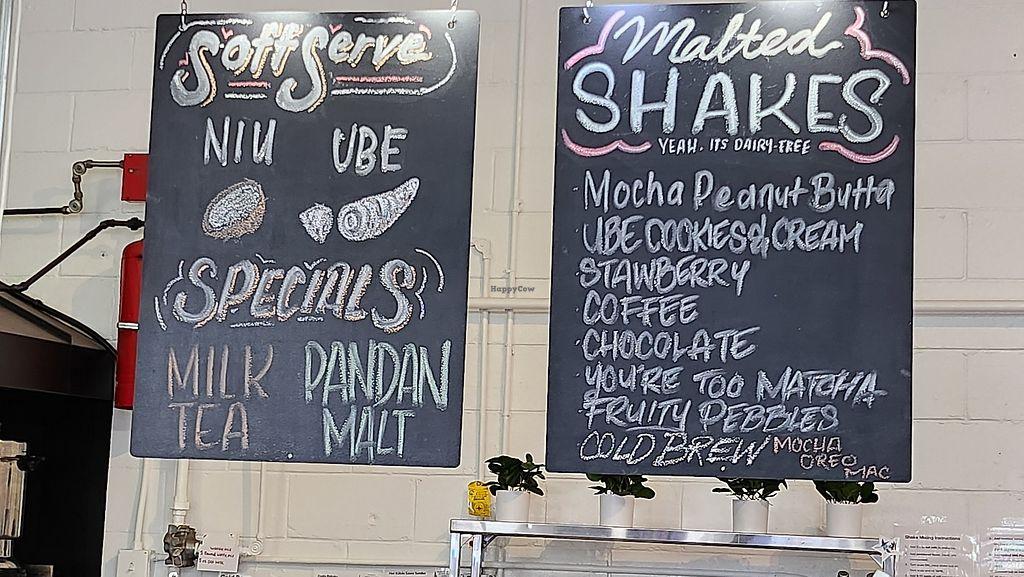 Soft Serve
NIU
UBE
SPECIALS
MILK
TEA
PANDAN
MALT
Malted
SHAKES
YEAH, ITS DAIRY-FREE
Mocha Peanut Butta
UBE COOKIES & CREAM
STAWBERRY
COFFEE
CHOCOLATE
YOU'RE TOO MATCHA
FRUITY PEBBLES
COLD BREW MOCHA
OREO
MAC
HappyCow
Shake Mixing Instructions